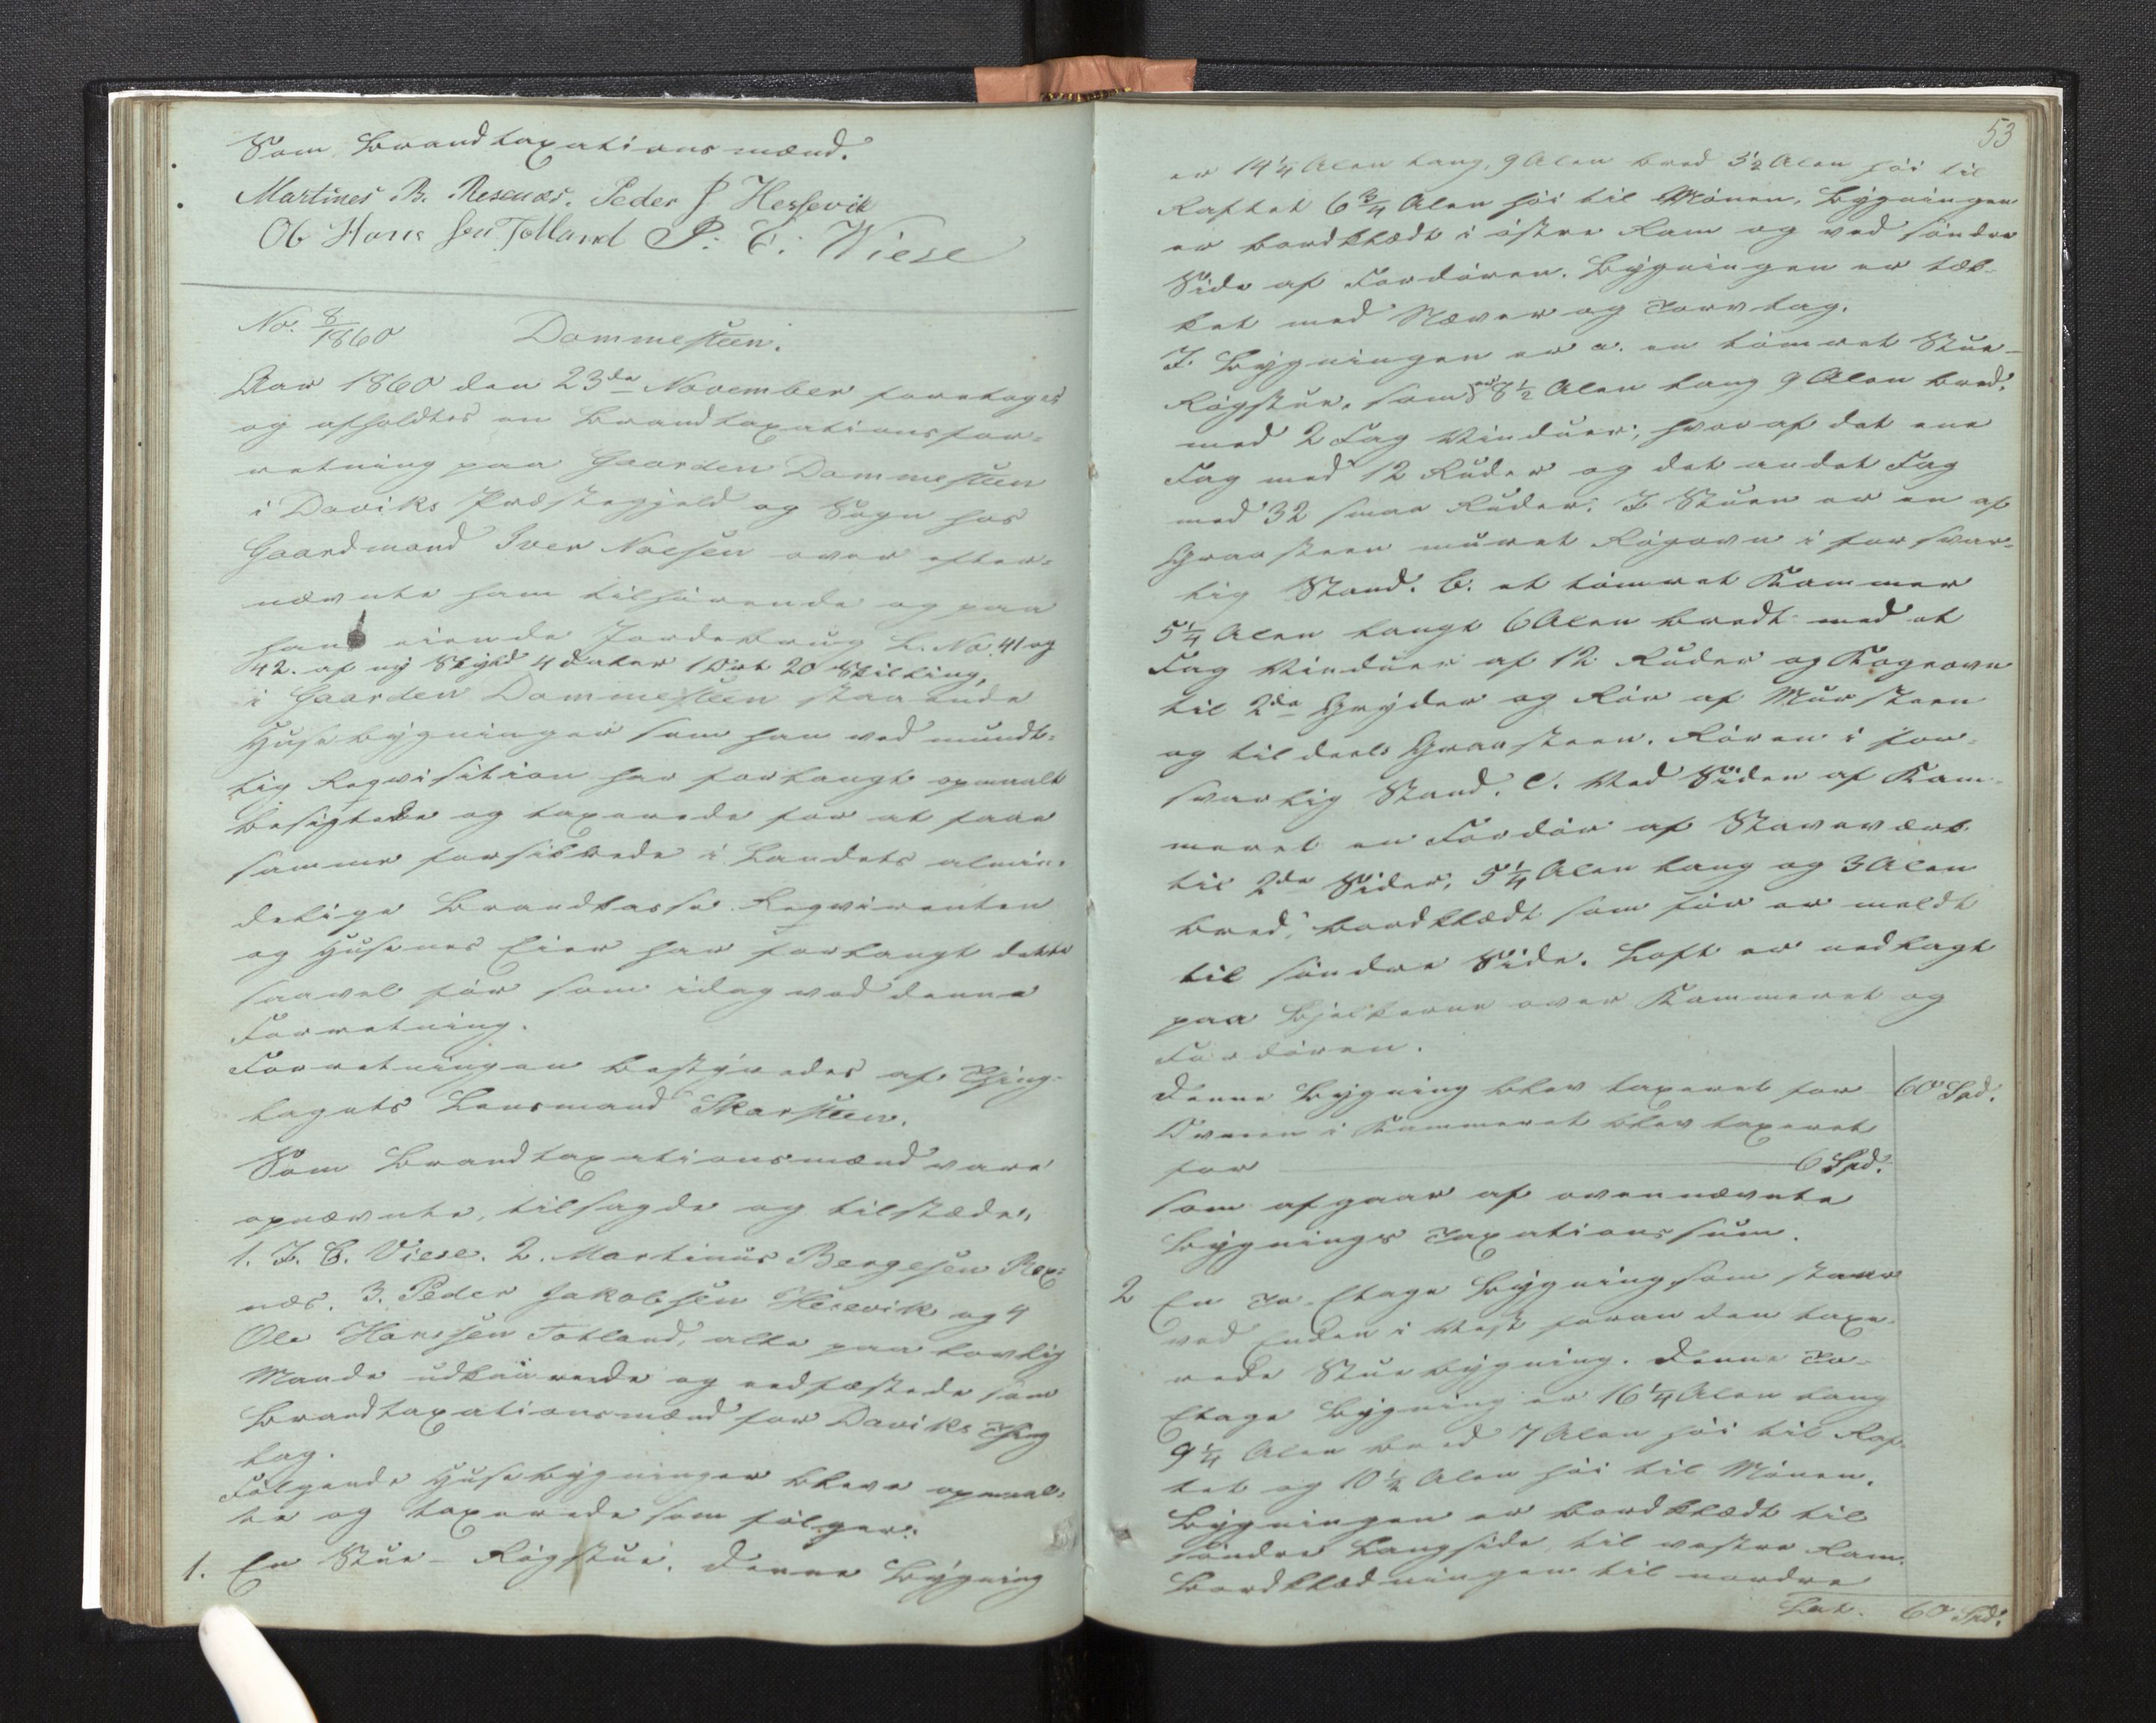 Som Brandtaxationsmænd.
Martines B. Rexnæs. Peder J Hessevik
Ole Hans sen Totland P: C: Wiese
No. 8/1860 Dommesteen.
Aar 1860 den 23de November foretoges
og afholdtes en Brandtaxationsfor-
retning paa Gaarden Dommesteen
i Daviks Præstegjeld og Sogn hos
Gaardmand Iver Nielsen over efter-
nævnte ham tilhørende og paa
hans eiende Jordebrug L. No. 41 og
42. af ny Skyld 4 daler 1 Ort 20 Skilling,
i Gaarden Dommesteen staaende
Husebygninger som han ved mundt-
lig Reqvisition har forlangt opmaalt
besigtede og taxerede for at faae
samme forsikkrede i Landets almin-
delige Brandkasse. Reqvirenten
og Husenes Eier har forlangt dette
saavel før som idag ved denne
Forretning.
Forretningen bestyredes af Thing-
lagets Lensmand Skarsteen.
Som Brandtaxationsmænd vare
opnævnte, tilsagde og tilstæde,
1. P. C. Viese. 2. Martinus Bergesen Rex-
næs. 3. Peder Jakobsen Hesevik og 4
Ole Hanssen Totland, alle paa lovlig
Maade udkaarede og edfæstede som
Brandtaxationsmænd for Daviks Thing
lag.
Følgende Husebygninger bleve opmaal-
te og taxerede som følger:
1. En Stue- Røgstue. Denne Bygning
53
er 14 1/4 Alen lang, 9 Alen bred 3 1/2 Alen høi til
Raftet 6 3/4 Alen høi til Mønen. Bygningen
er bordklædt i østre Ram og ved søndre
Side af Fordøren. Bygningen er tæk-
ket med Næver og Torvtag.
I Bygningen er a. en tømret Stue-
Røgstue, som er 8 1/2 Alen lang 9 Alen bred,
med 2 Fag Vinduer; hvoraf det ene
Fag med 12 Ruder og det andet Fag
med 32 smaa Ruder. I Stuen er en af
Graasteen muret Røgovn i forsvar-
lig Stand. b. et tømret Kammer
5 1/4 Alen langt 6 Alen bredt med et
Fag Vinduer af 12 Ruder og Kogeovn
til 2de Gryder og Rør af Mursteen
og tildeels Graasteen. Røren i for-
svarlig Stand. c. Ved Siden af Kam-
meret en Fordør af Staveværk
til 2de Sider, 5 1/4 Alen lang og 3 Alen
bred, bordklædt som før er meldt
til søndre Side. Loft er nedlagt
paa Bjelkerne over Kammeret og
Fordøren.
Denne Bygning blev taxeret for 60 Spd.
Ovnen i Kammeret blev taxeret
for 6 Spd.
som afgaar af ovennævnte
Bygnings Taxationssum.
2 En To- Etage Bygning som staar
ved Enden i Vest foran den taxe-
rede Stuebygning. Denne To-
Etage Bygning er 16 1/4 Alen lang
9 1/4 Alen bred 7 Alen høi til Raf-
tet og 10 1/2 Alen høi til Mønen.
Bygningen er bordklædt til
søndre Langside, til vestre Ram.
Bordklædningen til nordre
Lat. 60 Spd.